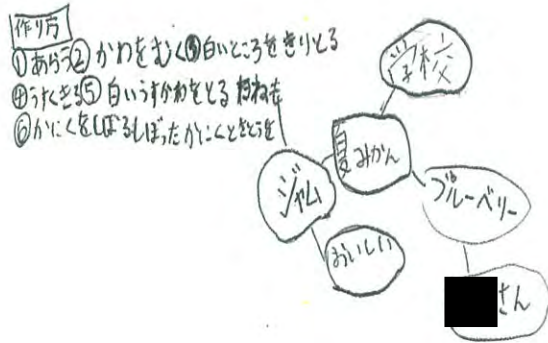 作り方
①あらう②かわをむく③白いところをきりとる
④うすくきる⑤白いうすかわをとる たねも
⑥かにくをしぼるしぼったかにくとさとうを
学校
夏みかん
ジャム
ブルーベリー
おいしい
さん